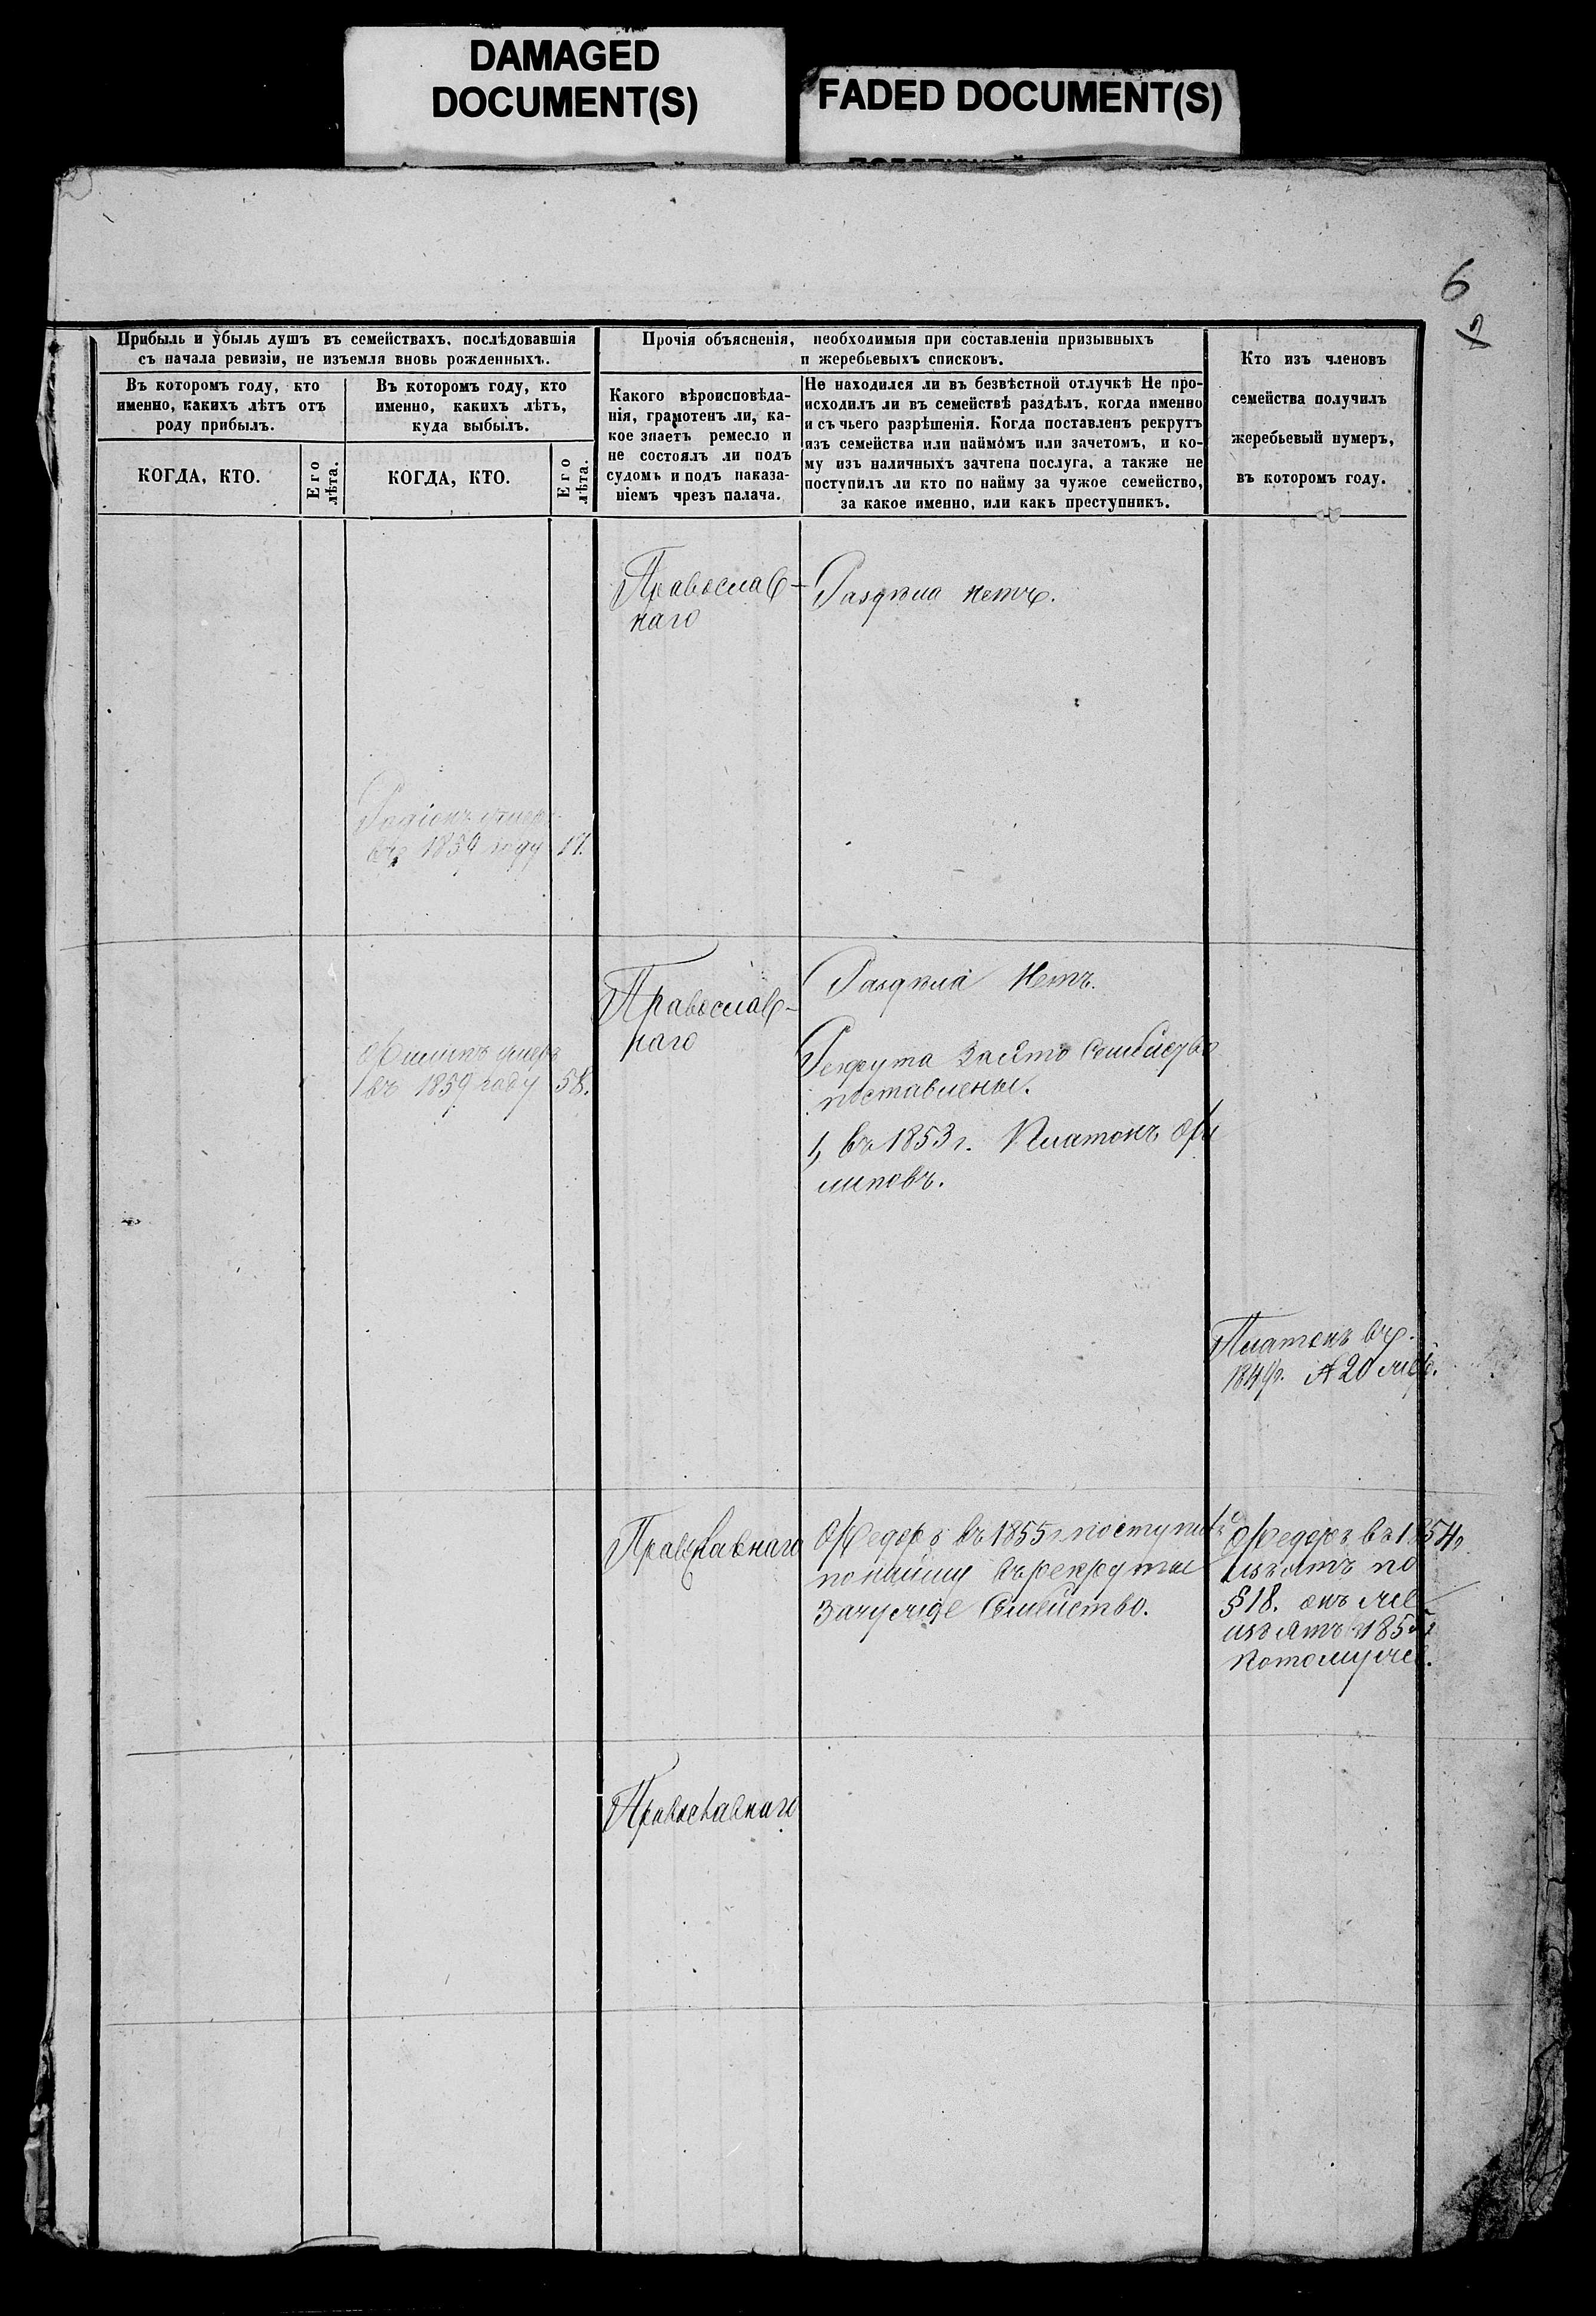 DAMAGED
DOCUMENT(S)
FADED DOCUMENT(S)
6
2
Прибыль и убыль душъ въ семействахъ, послѣдовавшія
съ начала ревизіи, не изъемля вновь рожденныхъ.
Въ которомъ году, кто
именно, какихъ лѣтъ отъ
роду прибылъ.
Въ которомъ году, кто
именно, какихъ лѣтъ,
куда выбылъ.
КОГДА, КТО.
Его
лѣта.
КОГДА, КТО.
Его
лѣта.
Прочія объясненія, необходимыя при составленіи призывныхъ
и жеребьевыхъ списковъ.
Какого вѣроисповѣда-
нія, грамотенъ ли, ка-
кое знаетъ ремесло и
не состоялъ ли подъ
судомъ и подъ наказа-
ніемъ чрезъ палача.
Не находился ли въ безвѣстной отлучкѣ Не про-
исходилъ ли въ семействѣ раздѣлъ, когда именно
и съ чьего разрѣшенія. Когда поставленъ рекрутъ
изъ семейства или наймомъ или зачетомъ, и ко-
му изъ наличныхъ зачтена послуга, а также не
поступилъ ли кто по найму за чужое семейство,
за какое именно, или какъ преступникъ.
Кто изъ членовъ
семейства получилъ
жеребьевый нумеръ,
въ которомъ году.
Православ-
наго
Раздѣла нетъ.
Родіонъ умеръ
въ 1859 году 17.
Православ-
наго
Раздѣла Нетъ.
Рекрута За это Семейство
поставлены.
1, въ 1853 г. Платонъ Фи
липовъ.
Филипъ умеръ
въ 1859 году 58.
Платонъ въ
1849г. № 20
Православнаго
Федоръ въ 1855 г. поступилъ
по найму въ рекруты
За чужое Семейство.
Федоръ въ 1854г
изъятъ по
§ 18. онъ же
изъятъ 1855г
потому же.
Православнаго